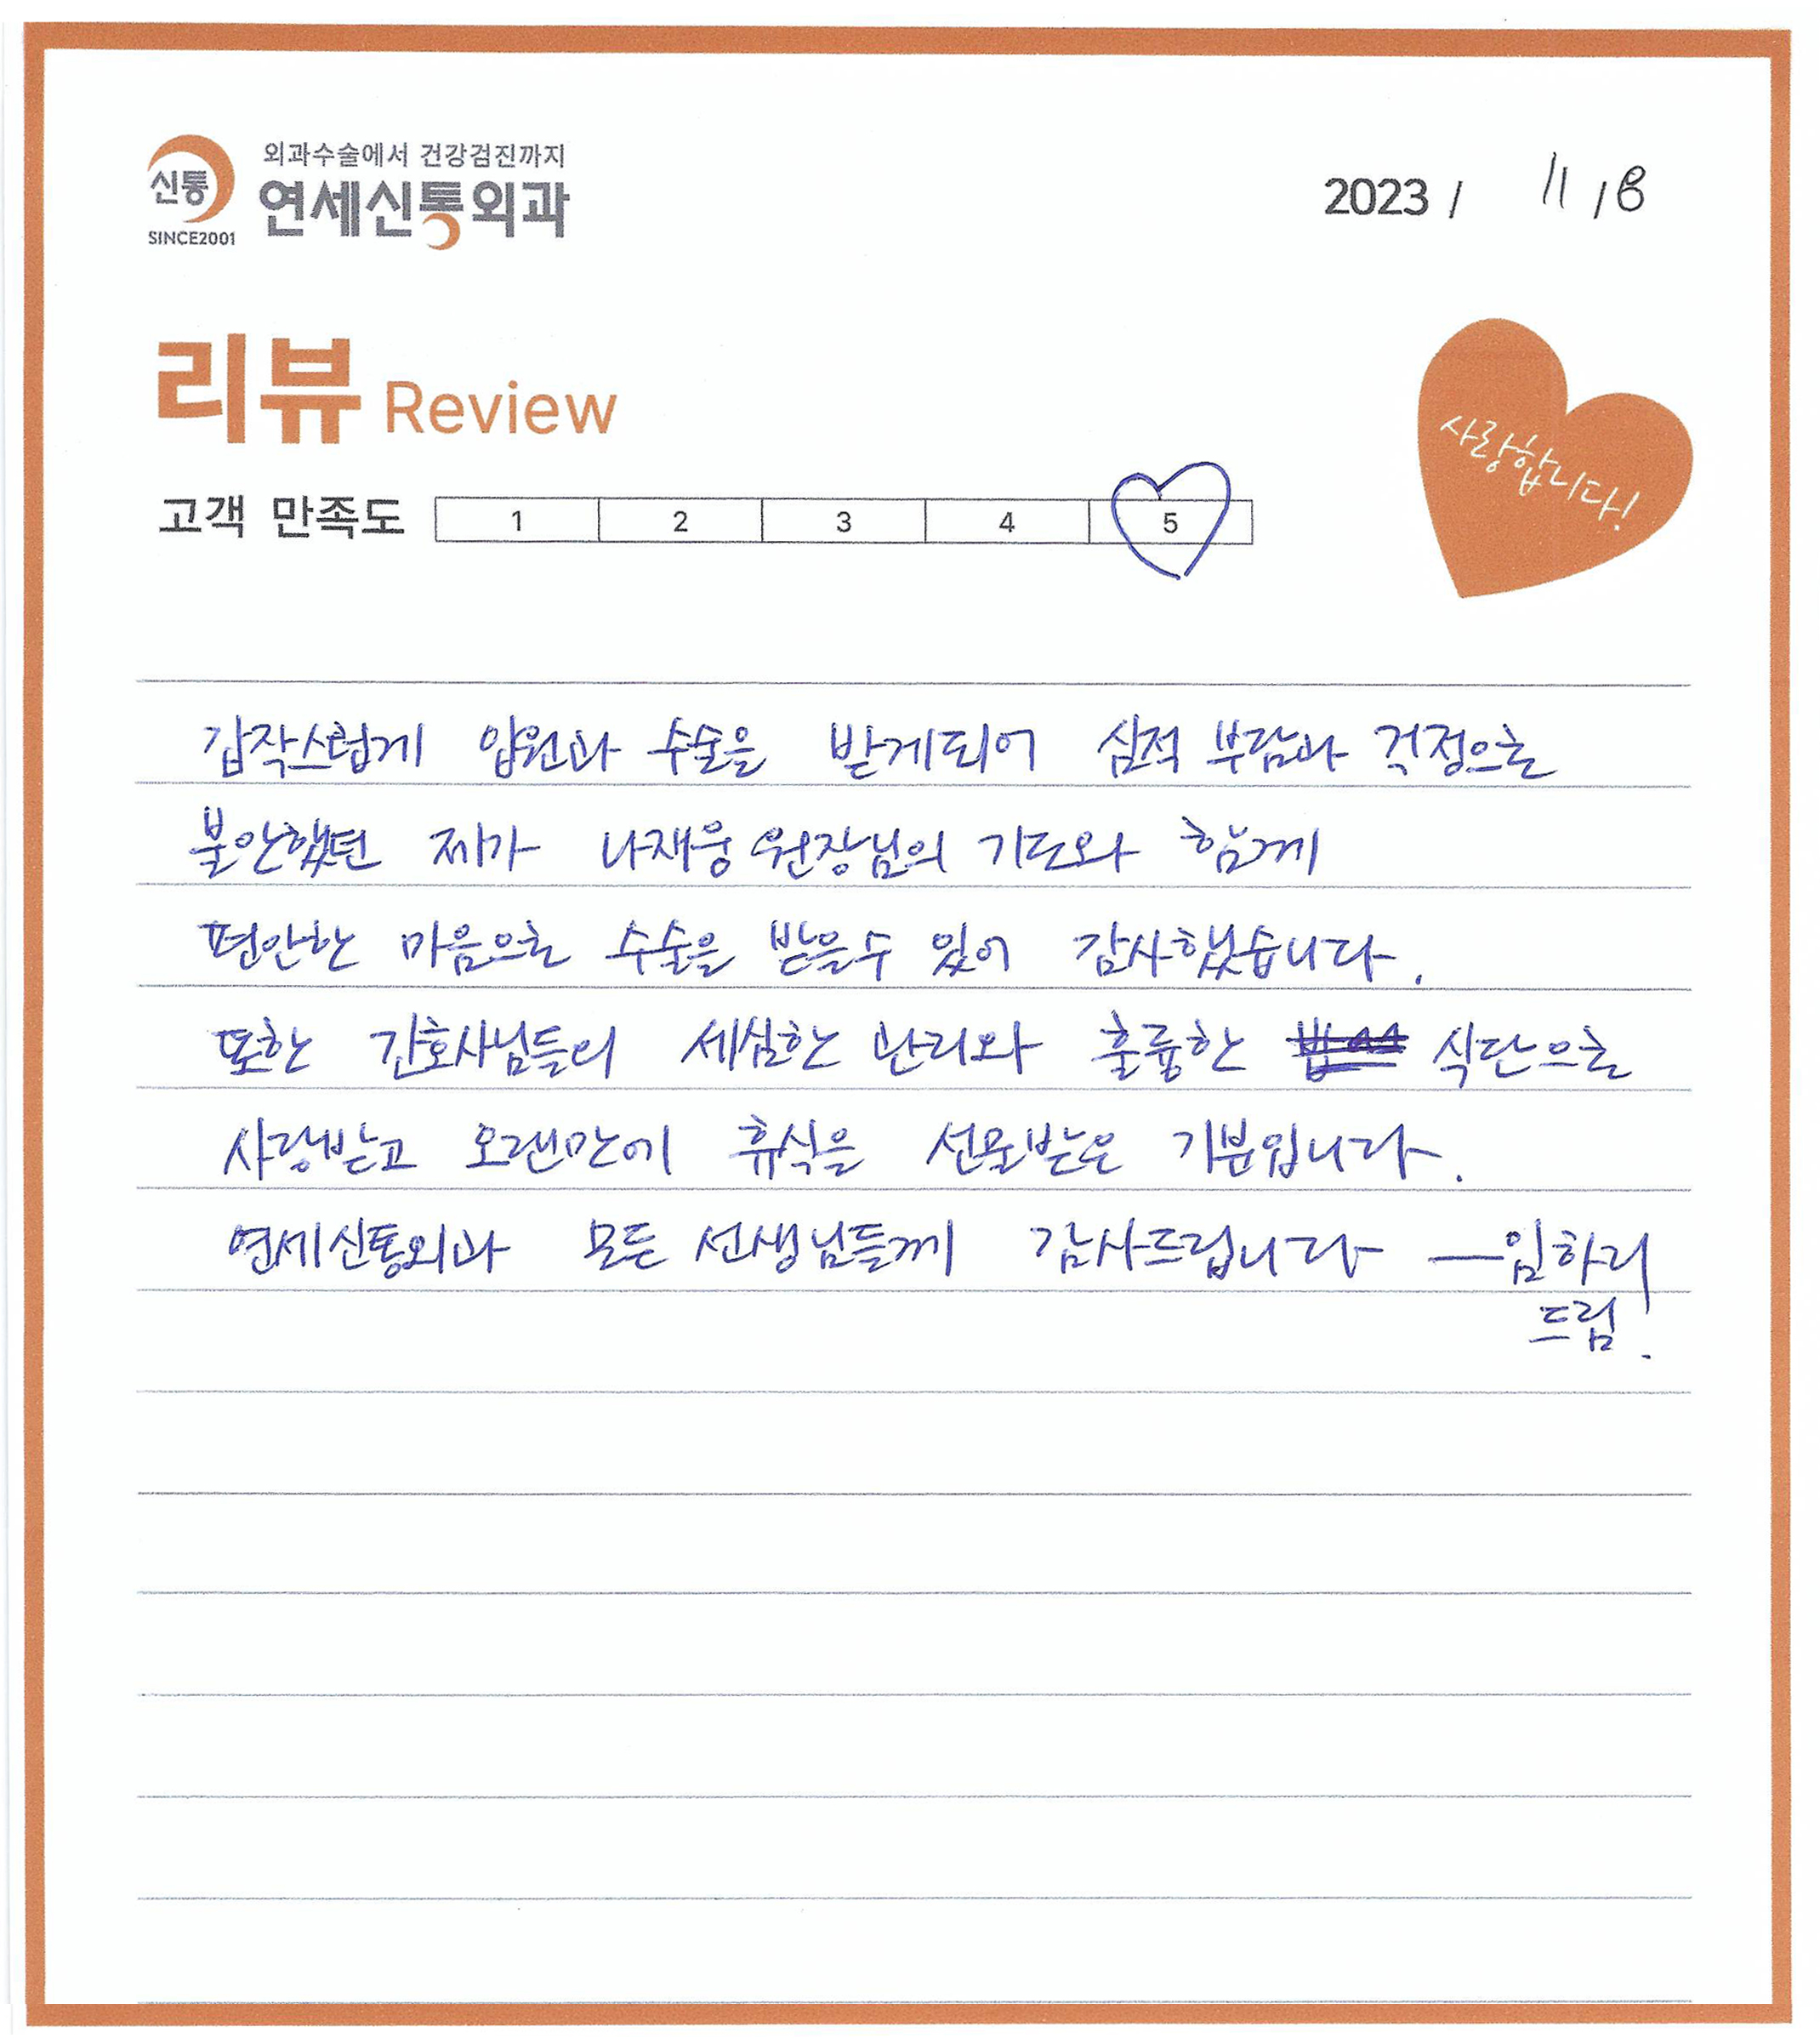 외과수술에서 건강검진까지
신통 연세신통외과
SINCE2001
2023 / 11 / 8
리뷰 Review
사랑합니다!
고객 만족도 1 2 3 4 5
갑작스럽게 입원과 수술을 받게되어 심적 부담과 걱정으로
불안했던 제가 나재웅 원장님의 기도와 함께
편안한 마음으로 수술을 받을수 있어 감사했습니다.
또한 간호사님들의 세심한 관리와 훌륭한 식단으로
사랑받고 오랜만에 휴식을 선물받은 기분입니다.
연세신통외과 모든 선생님들께 감사드립니다 — 임하리
드림.